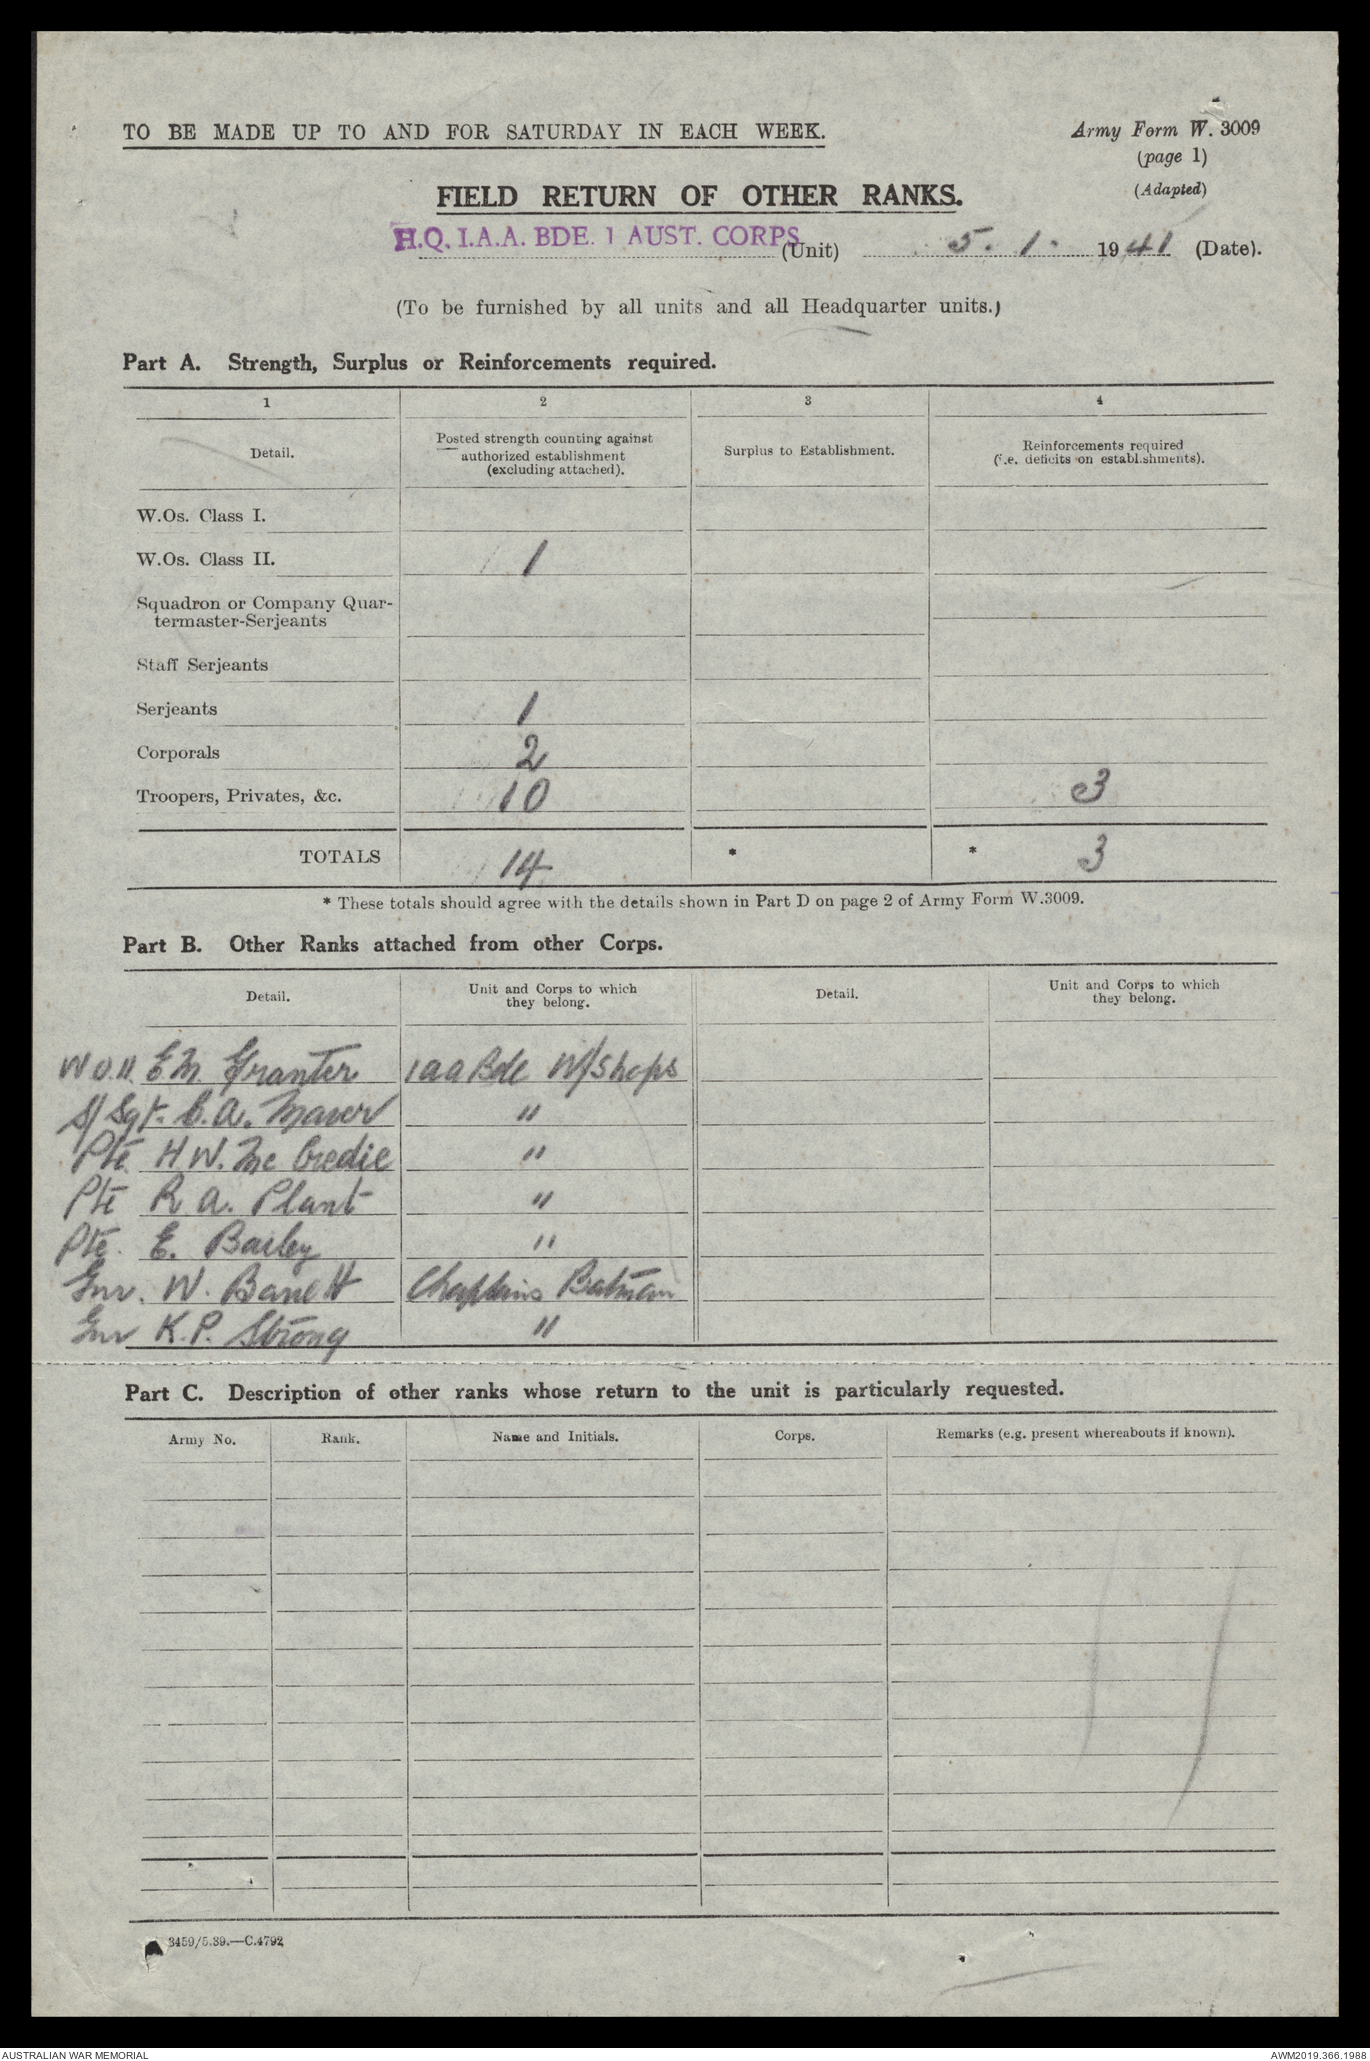 TO BE MADE UP TO AND FOR SATURDAY IN EACH WEEK.
Army Form W. 3009
(page 1)
(Adapted)
FIELD RETURN OF OTHER RANKS.
H.Q. I.A.A. BDE. 1 AUST. CORPS (Unit) 5. 1. 1941 (Date).
(To be furnished by all units and all Headquarter units.)
Part A. Strength, Surplus or Reinforcements required.
1 2 3 4
Detail. Posted strength counting against authorized establishment (excluding attached). Surplus to Establishment. Reinforcements required (i.e. deficits on establishments).
W.Os. Class I.
W.Os. Class II. 1
Squadron or Company Quar-
termaster-Serjeants
Staff Serjeants
Serjeants 1
Corporals 2
Troopers, Privates, &c. 10 3
TOTALS 14 * * 3
* These totals should agree with the details shown in Part D on page 2 of Army Form W.3009.
Part B. Other Ranks attached from other Corps.
Detail. Unit and Corps to which they belong. Detail. Unit and Corps to which they belong.
W.O.II. E.M. Granter 1 aa Bde W/Shops
S/Sgt. A. "
Pte H.W. Mc Credie "
Pte R a. Plant "
Pte. E. Bailey "
Gnr. W. Barrett Chaplains Batman
Gnr K.P. Strong "
Part C. Description of other ranks whose return to the unit is particularly requested.
Army No. Rank. Name and Initials. Corps. Remarks (e.g. present whereabouts if known).
3459/5.39.—C.4792
AUSTRALIAN WAR MEMORIAL
AWM2019.366.1988